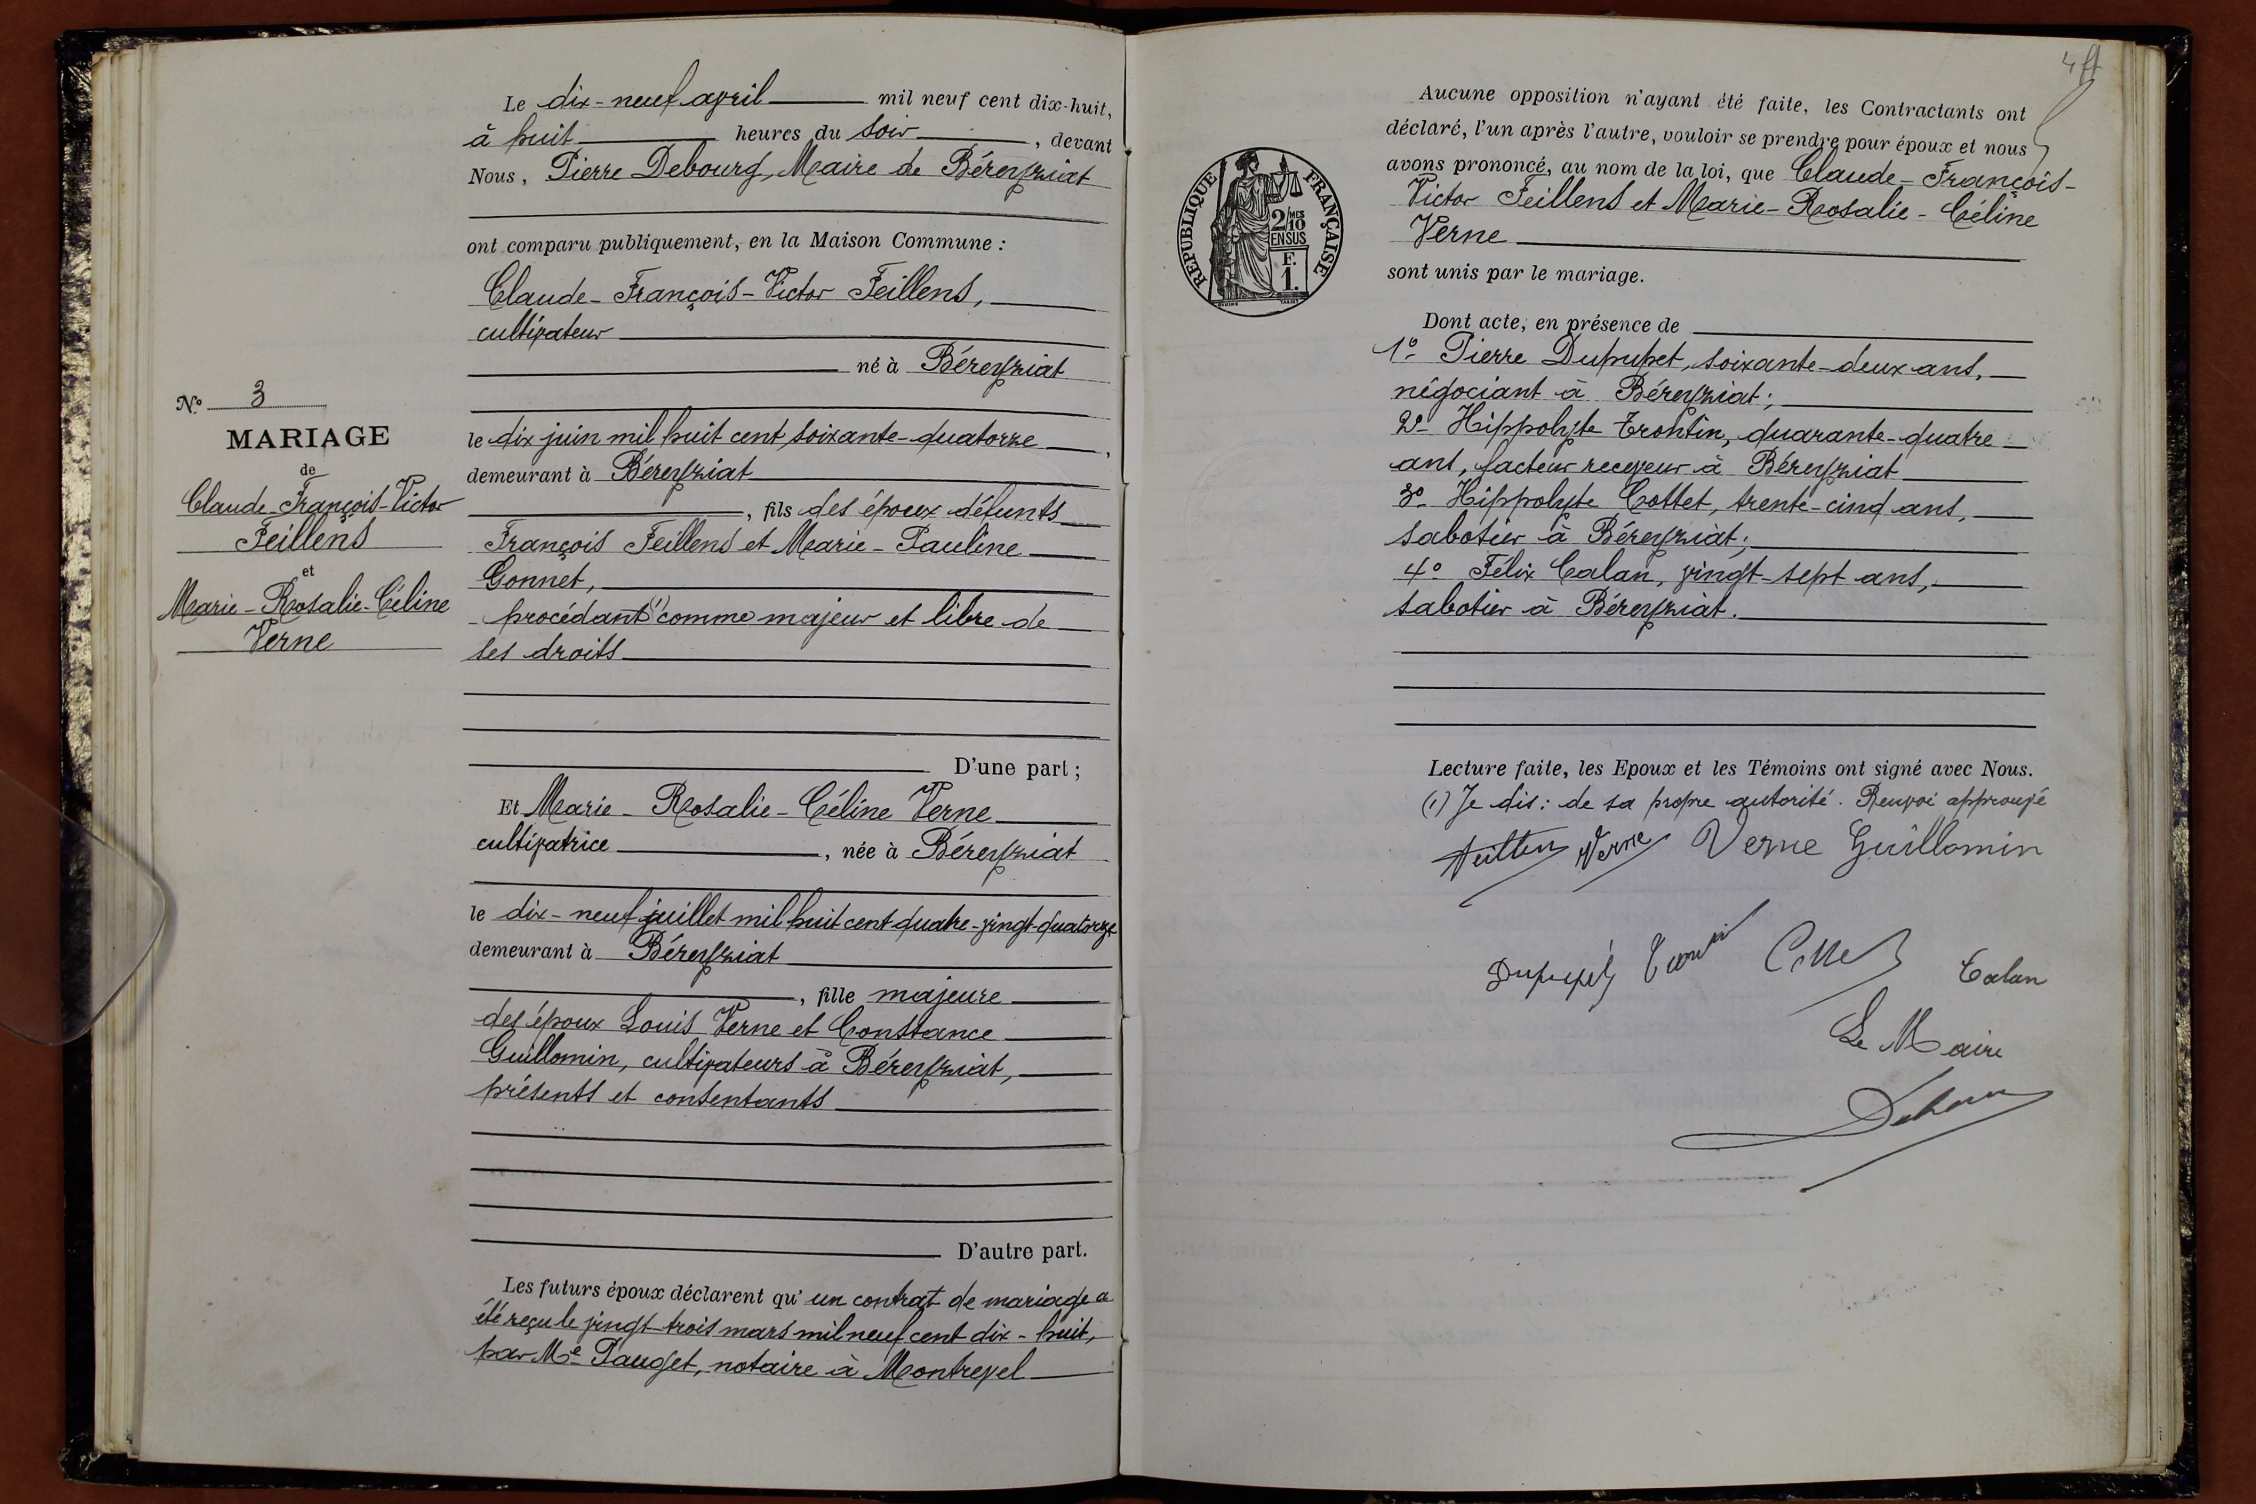 Le dix-neuf avril mil neuf cent dix-huit,
à huit heures du soir, devant
Nous, Pierre Debourg, Maire de Béreyziat
ont comparu publiquement, en la Maison Commune :
Claude-François-Victor Feillens,
cultivateur
né à Béreyziat
le dix juin mil huit cent soixante-quatorze,
demeurant à Béreyziat
, fils des époux défunts
François Feillens et Marie-Pauline
Gonnet,
procédant (1) comme majeur et libre de
ses droits
D'une part ;
Et Marie-Rosalie-Céline Verne
cultivatrice, née à Béreyziat
le dix-neuf juillet mil huit cent quatre-vingt-quatorze
demeurant à Béreyziat
, fille majeure
des époux Louis Verne et Constance
Guillomin, cultivateurs à Béreyziat,
présents et consentants
D'autre part.
Les futurs époux déclarent qu'un contrat de mariage a
été reçu le vingt-trois mars mil neuf cent dix-huit,
par Me Pauget, notaire à Montrevel
No 3
MARIAGE
de
Claude-François-Victor
Feillens
et
Marie-Rosalie-Céline
Verne
4
RÉPUBLIQUE FRANÇAISE
2/10 MES
EN SUS
F.
1.
Aucune opposition n'ayant été faite, les Contractants ont
déclaré, l'un après l'autre, vouloir se prendre pour époux et nous
avons prononcé, au nom de la loi, que Claude-François-
Victor Feillens et Marie-Rosalie-Céline
Verne
sont unis par le mariage.
Dont acte, en présence de
1o Pierre Dupupet, soixante-deux ans,
négociant à Béreyziat ;
2o Hippolyte Trontin, quarante-quatre
ans, facteur receveur à Béreyziat
3o Hippolyte Cottet, trente-cinq ans,
sabotier à Béreyziat ;
4o Félix Calan, vingt-sept ans,
sabotier à Béreyziat.
Lecture faite, les Epoux et les Témoins ont signé avec Nous.
(1) Je dis : de sa propre autorité. Renvoi approuvé
Feillens Verne Verne Guillomin
Dupupet Cottet Calan
Le Maire
Debourg